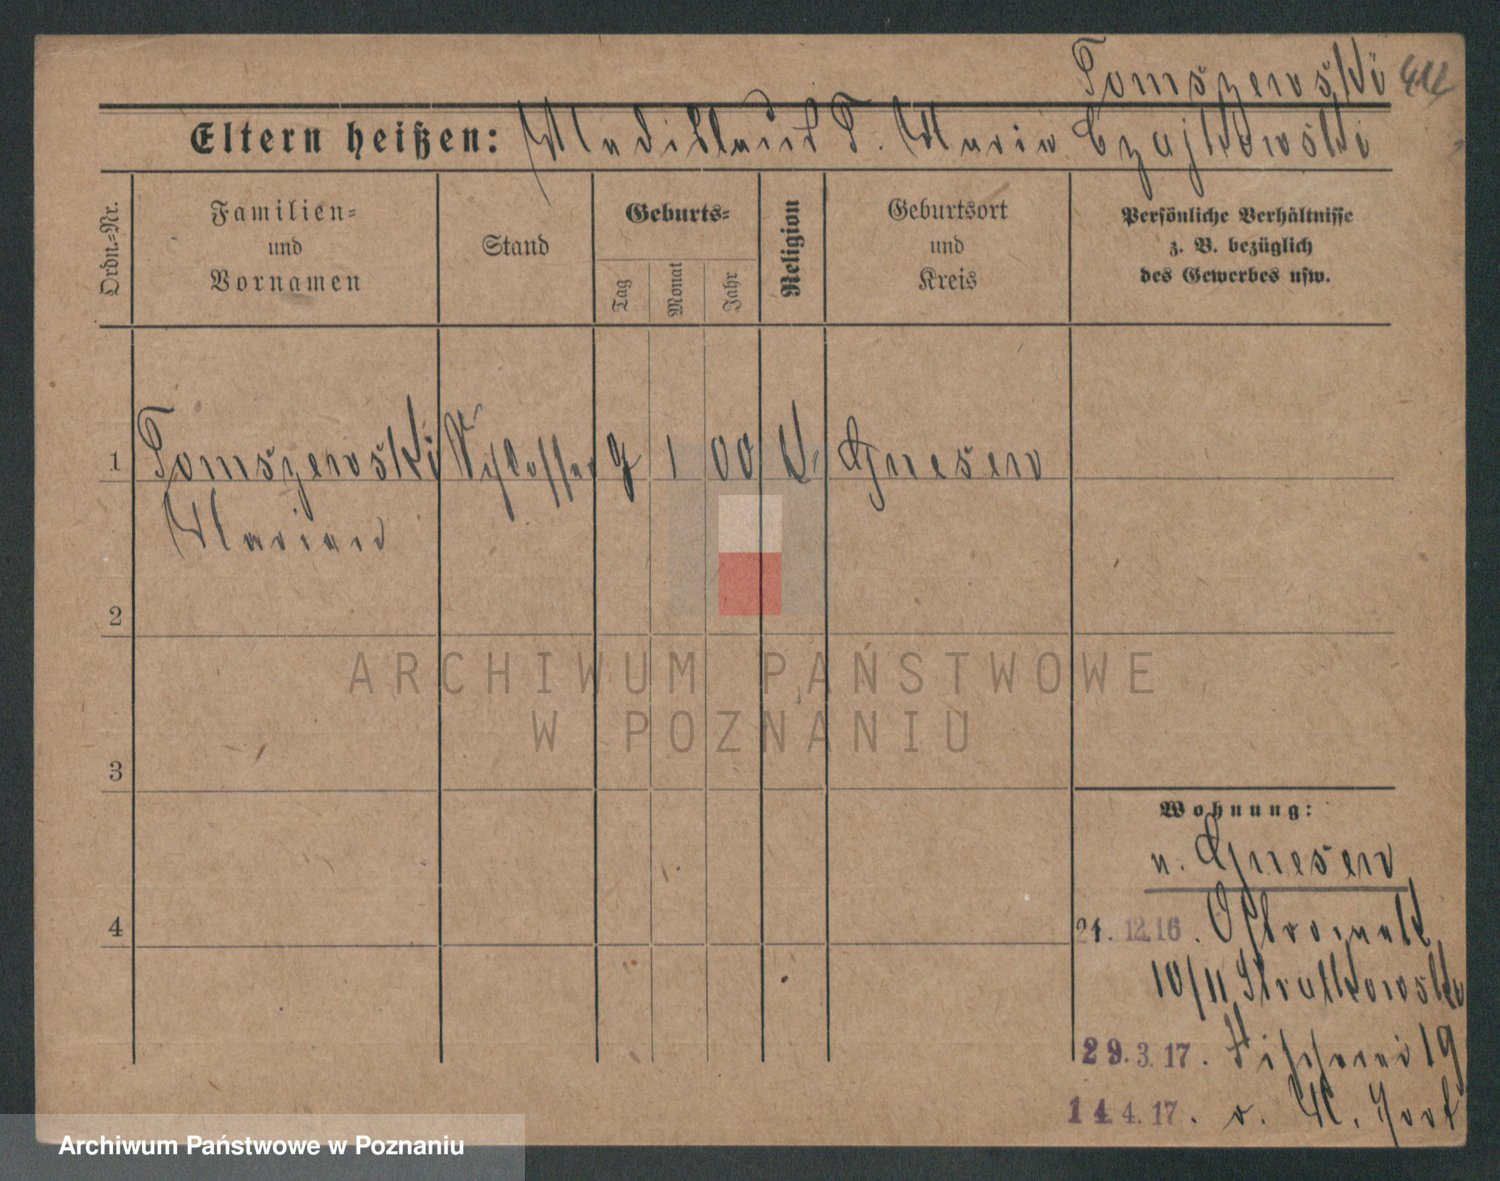 Tomszewski
Eltern heißen: Wladislaus T. Maria Czajkowski
Ordn.=Nr.
Familien=
und
Vornamen
Stand
Geburts=
Tag
Monat
Jahr
Religion
Geburtsort
und
Kreis
Persönliche Verhältnisse
z. B. bezüglich
des Gewerbes usw.
1 Tomszewski Schlosser 9 1 00 k. Gnesen
Marian
2
3
4
ARCHIWUM PAŃSTWOWE
W POZNANIU
Wohnung:
n. Gnesen
21. 12. 16. Ostromek
10/11 Strutkowski
29. 3. 17. Fischerei 19
14. 4. 17. v. u. fort
Archiwum Państwowe w Poznaniu